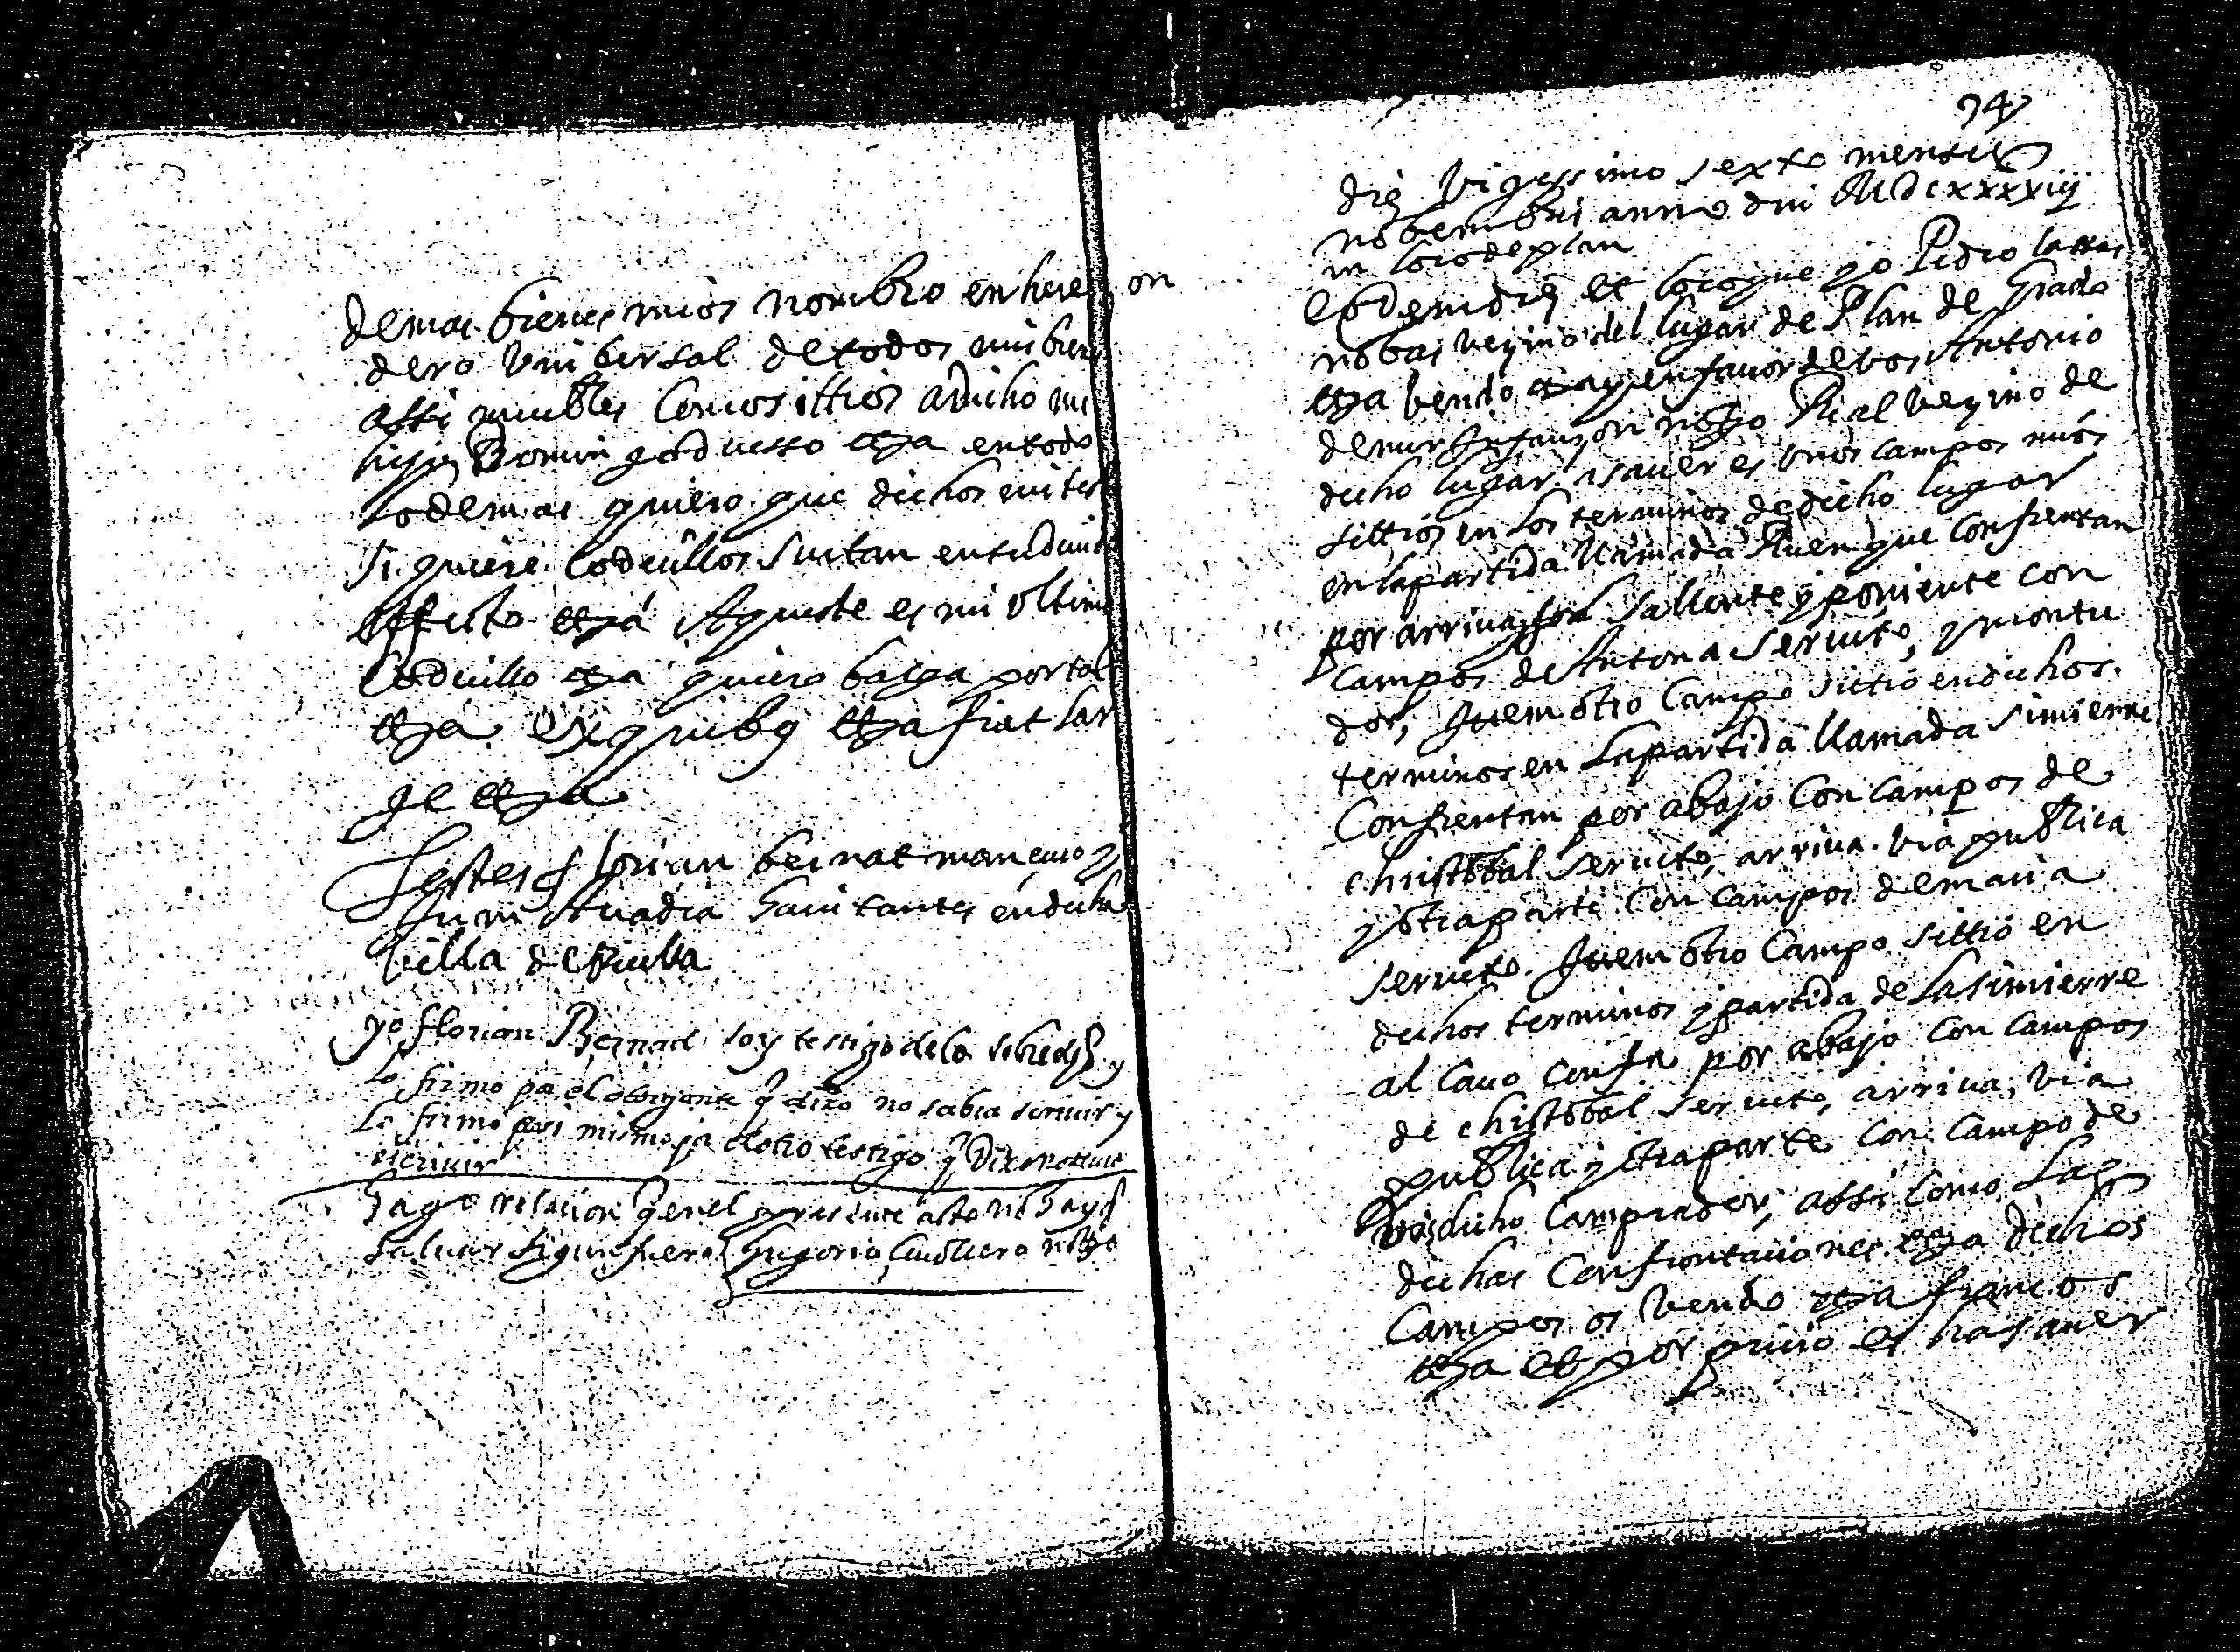 demas bienes mios nombro en here
dero Unibersal de todos mis biens
assi muebles Como sittios a dicho mi
hijo Domingo Duesso etza en todo
lo demas quiero que dichos mi test
si quiere Codicillos surtan en su deuido
effecto etza Aqueste es mi Ultimo
Codicillo etza quiero balga por tal
etza Ex quibus etza fiat lar
ge etza
Testes Florian bernat mancuo y
Juan habitantes en dicha
billa de
yo florian Bernad soy testigo de lo sobredho y
lo firmo por el otorgante q dixo no sabia scriuir y
lo firmo por mi mismo y por el otro testigo q Dixo no
escriuir
Hago relacion q en el presente acto no hay q
saluar segun fuero Gregorio notto
947
die Vigessimo sexto mensis
nobembris anno dni MDCxxxxiij
in loco de plan
Eodem die et loco que yo Pedro
nobas vezino del lugar de Plan de Grado
etza bendo etza y en fauor de bos Antonio
de mur Infanzon notto Real vezino de
dicho lugar a sauer es unos campos mios
sittios en los terminos de dicho lugar
en la partida llamada que confrentan
por arriua, Salliente y poniente con
Campos de Antona Serueto, y
dor, Item otro Campo sittio en dichos
terminos en la partida llamada simierre
Confrentan por abajo Con campos de
christobal Serueto, arriua. via publica
y otra parte Con campos de maria
Serueto. Item otro Campo sittio en
dichos terminos y partida de la simierre
al Cauo confr. por abajo con Campos
de christobal Serueto, arriua, via
publica y otra parte con Campo de
vos dicho Comprador, assi como las
dichas Confrontaciones etza dichos
Campos os Vendo etza francos
etza et por precio es ha sauer